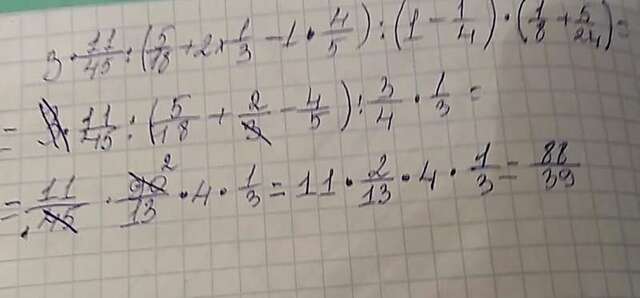 3 · 11/45 : (5/18 + 2 · 1/3 - 1 · 4/5) : (1 - 1/4) · (1/8 + 5/24) =
= 3 · 11/45 : (5/18 + 2/3 - 4/5) : 3/4 · 1/3 =
= 11/45 · 90 2/13 · 4 · 1/3 = 11 · 2/13 · 4 · 1/3 = 88/39